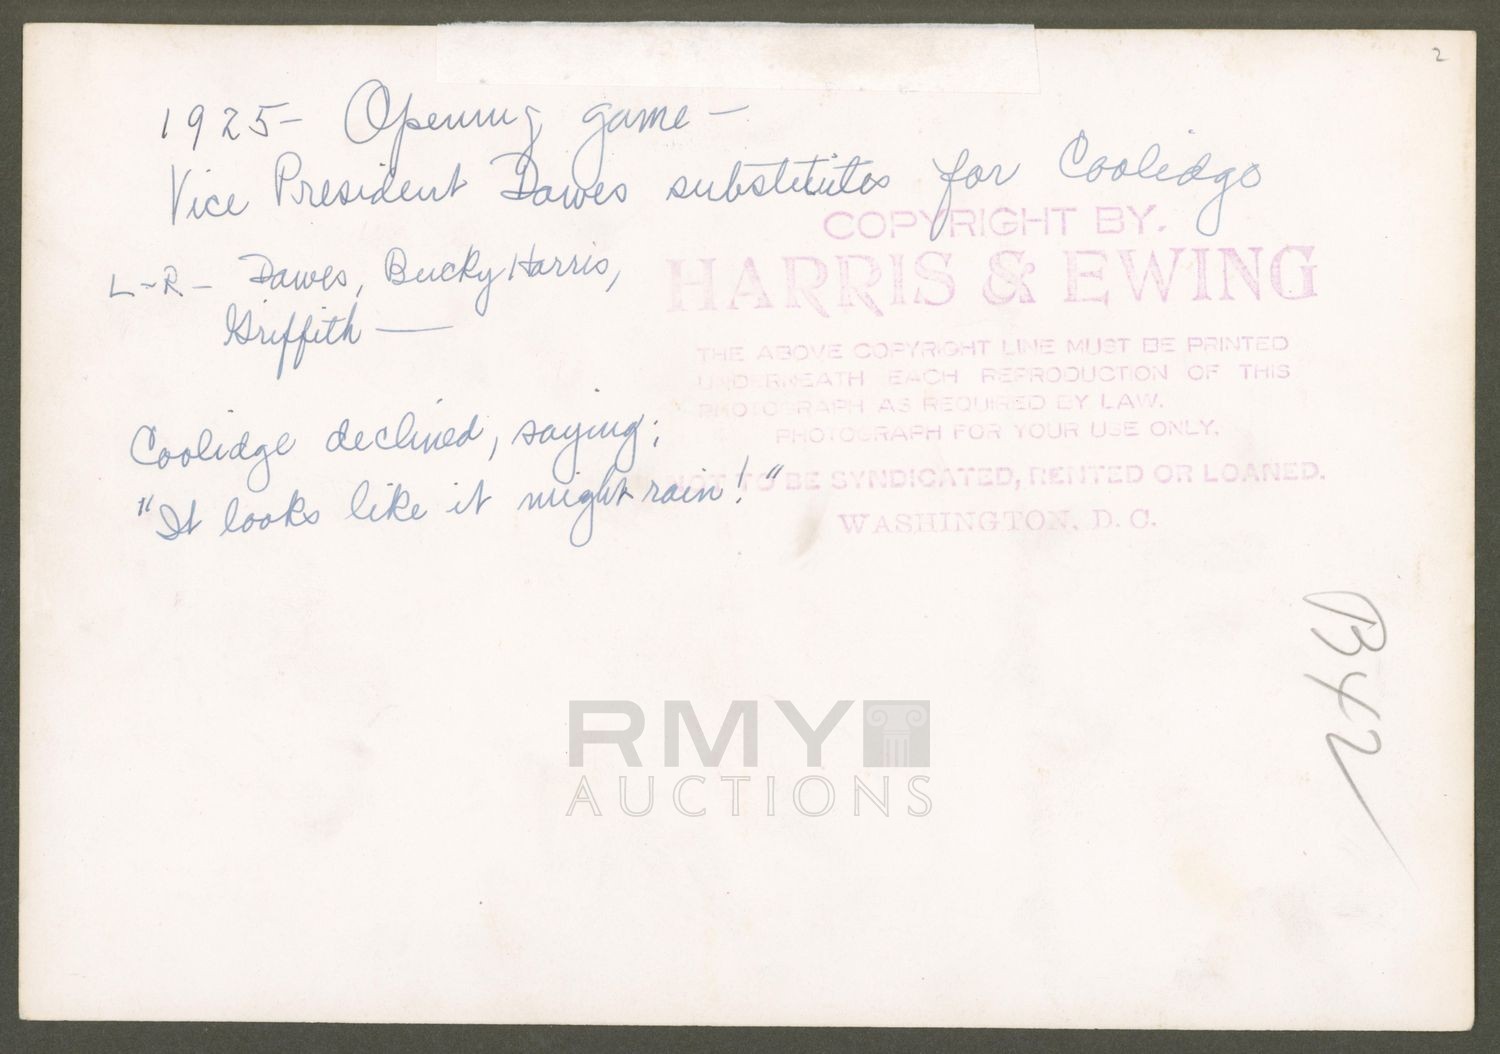 2
1925- Opening game -
Vice President Dawes substitutes for Coolidge
L-R- Dawes, Bucky Harris,
Griffith —
Coolidge declined, saying;
"It looks like it might rain!"
COPYRIGHT BY.
HARRIS & EWING
THE ABOVE COPYRIGHT LINE MUST BE PRINTED
UNDERNEATH EACH REPRODUCTION OF THIS
PHOTOGRAPH AS REQUIRED BY LAW.
PHOTOGRAPH FOR YOUR USE ONLY.
NOT TO BE SYNDICATED, RENTED OR LOANED.
WASHINGTON, D. C.
B42
RMY
AUCTIONS